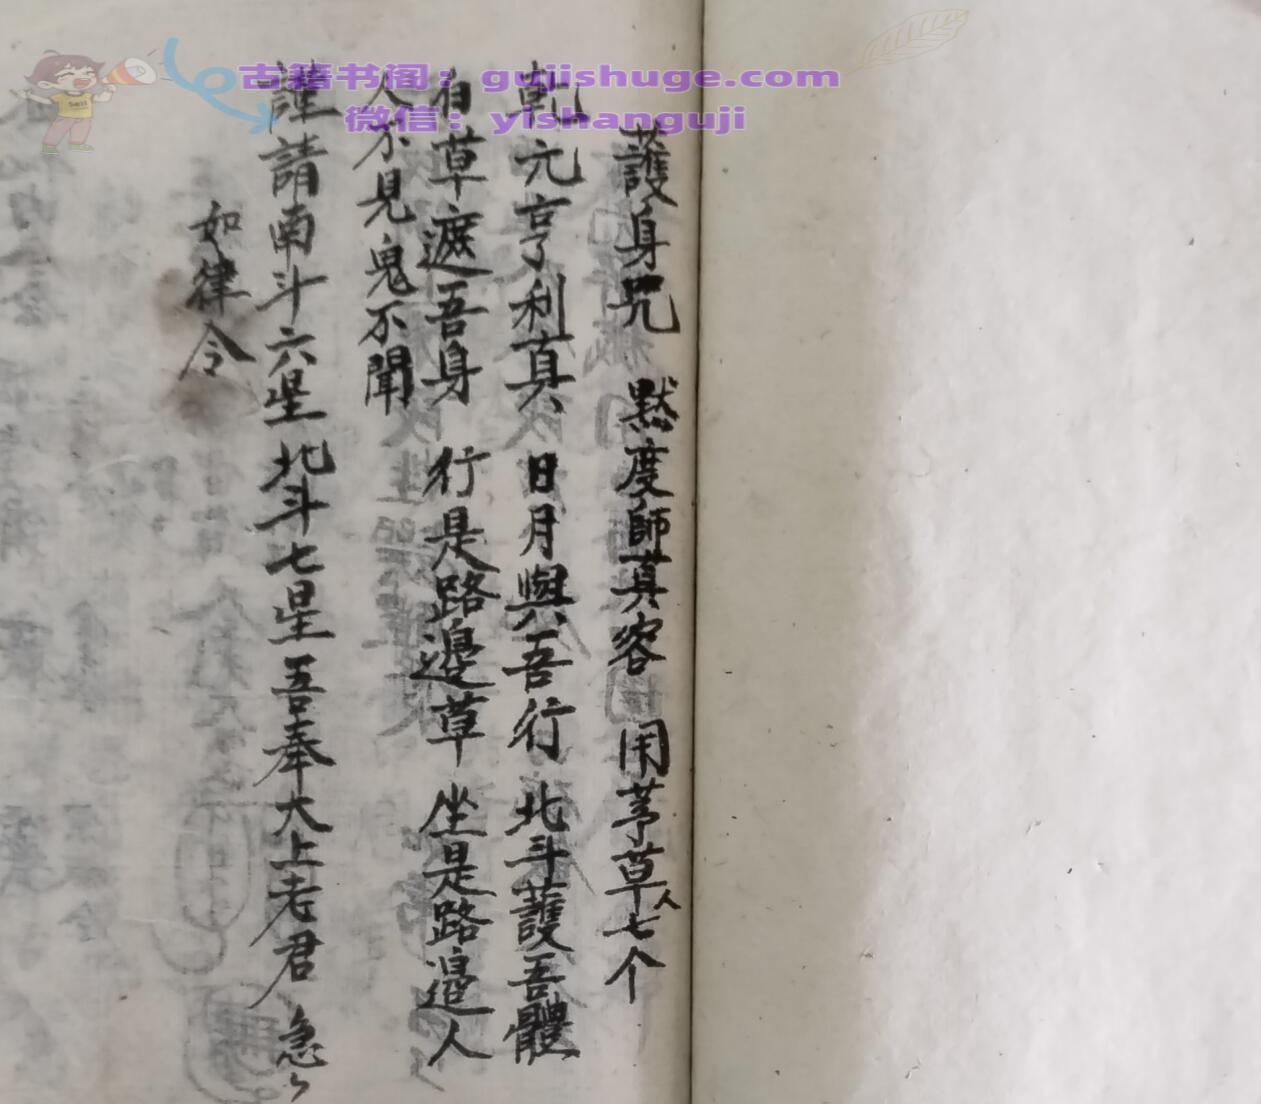 古籍书阁：gujishuge.com
微信：yishanguji
護身咒 黙度師真容 用茅草人七个
乹元亨利真 日月與吾行 北斗護吾體
白草遮吾身 行是路邊草 坐是路邊人
人不見鬼不聞
謹請南斗六星北斗七星吾奉大上老君 急々
如律令